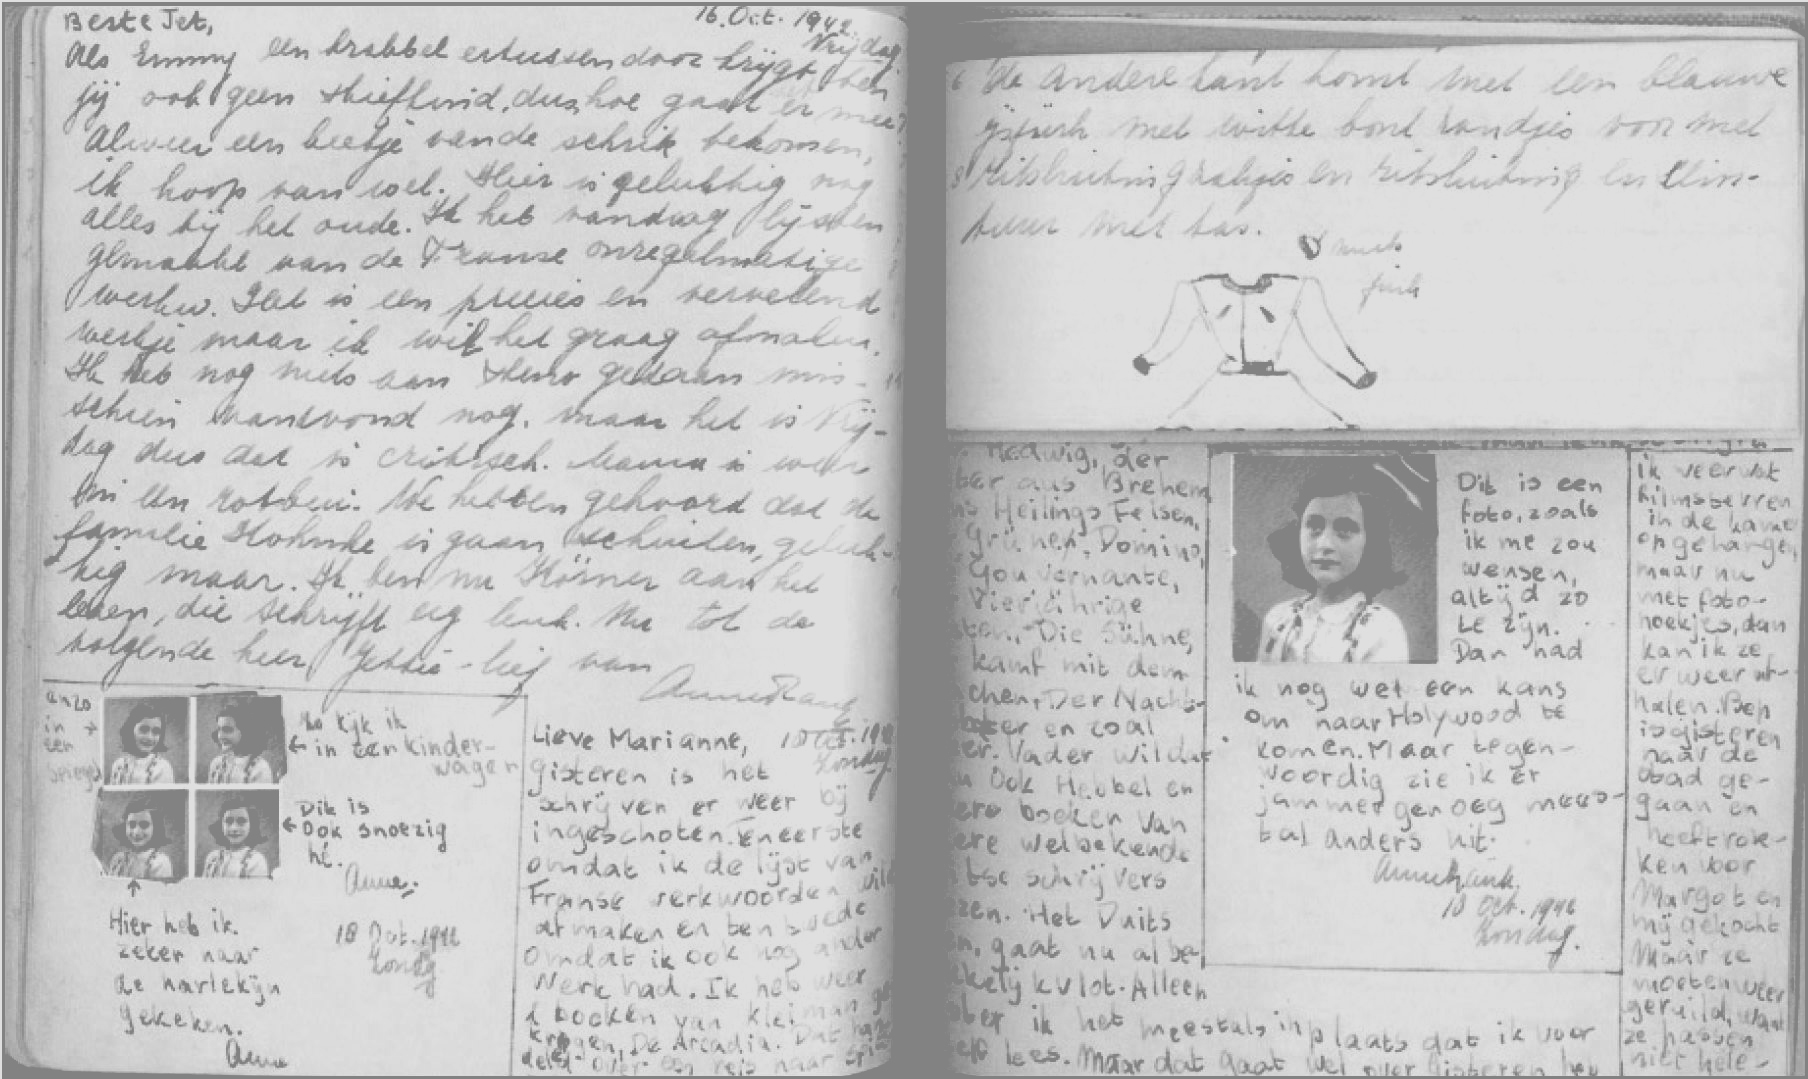 Beste Jet,
16. Oct. 1942.
Vrijdag.
Als Emmy een krabbel ertussendoor krijgt ben
jij ook geen stiefkind, dus hoe gaat er mee?
Alweer een beetje van de schrik bekomen,
ik hoop van wel. Hier is gelukkig nog
alles bij het oude. Ik heb vandaag lijsten
gemaakt van de Franse onregelmatige
werkw. Het is een precies en vervelend
werkje maar ik wil het graag afmaken.
Ik heb nog niets aan Steno gedaan mis-
schien vanavond nog. maar het is Vrij-
dag dus dat is critisch. Mama is weer
in een rotbui. We hebben gehoord dat de
familie is gaan schuilen, geluk-
kig maar. Ik ben nu Körner aan het
lezen, die schrijft erg leuk. Nu tot de
volgende keer Jettie-lief van
Anne Frank
en zo
in →
een
spiegel
Zo kijk ik
← in een kinder-
wagen
Dit is
← Ook snoezig
hé.
Anne.
↑
Hier heb ik
zeker naar
de harlekijn
gekeken.
Anne
18 Oct. 1942
Zondag
Lieve Marianne,
18 Oct. 1942
Zondag.
gisteren is het
schrijven er weer bij
ingeschoten. Ten eerste
omdat ik de lijst van
Franse werkwoorden wilde
afmaken en ten tweede
omdat ik ook nog ander
werk had. Ik heb weer
2 boeken van Kleiman ge
kregen, De Arcadia. Dat han
delt over een reis naar
6 de andere kant komt met een blauwe
ijsjurk met witte bont randjes voor met
8 ritssluiting zakjes en ritssluiting en
met tas.
muts
jurk
Hedwig, der
ter aus Brehem
ns Heilings Felsen,
Grünen, Domino,
Gouvernante,
Vierjährige
ten, Die Sühne,
kamf mit dem
chen, Der Nacht-
ter en zoal
er. Vader wil dat
u Ook Hebbel en
ere boeken van
ere welbekende
tse schrijvers
zen. Het Duits
n, gaat nu al be-
kelijk vlot. Alleen
ber ik het meestals in plaats dat ik voor
elf lees. Maar dat gaat wel over gisteren heb
Dit is een
foto, zoals
ik me zou
wensen,
altijd zo
te zijn.
Dan had
ik nog wel een kans
om naar Holywood te
komen. Maar tegen-
woordig zie ik er
jammer genoeg mees-
tal anders uit.
Anne Frank.
18 Oct. 1942
Zondag.
ik veer wat
filmsterren
in de kamer
opgehangen,
maar nu
met foto-
hoekjes, dan
kan ik ze
er weer uit-
halen. Bep
is gisteren
naar de
stad ge-
gaan en
heeft rok-
ken voor
Margot en
mij gekocht
Maar ze
moeten weer
geruild, want
ze passen
niet hele-